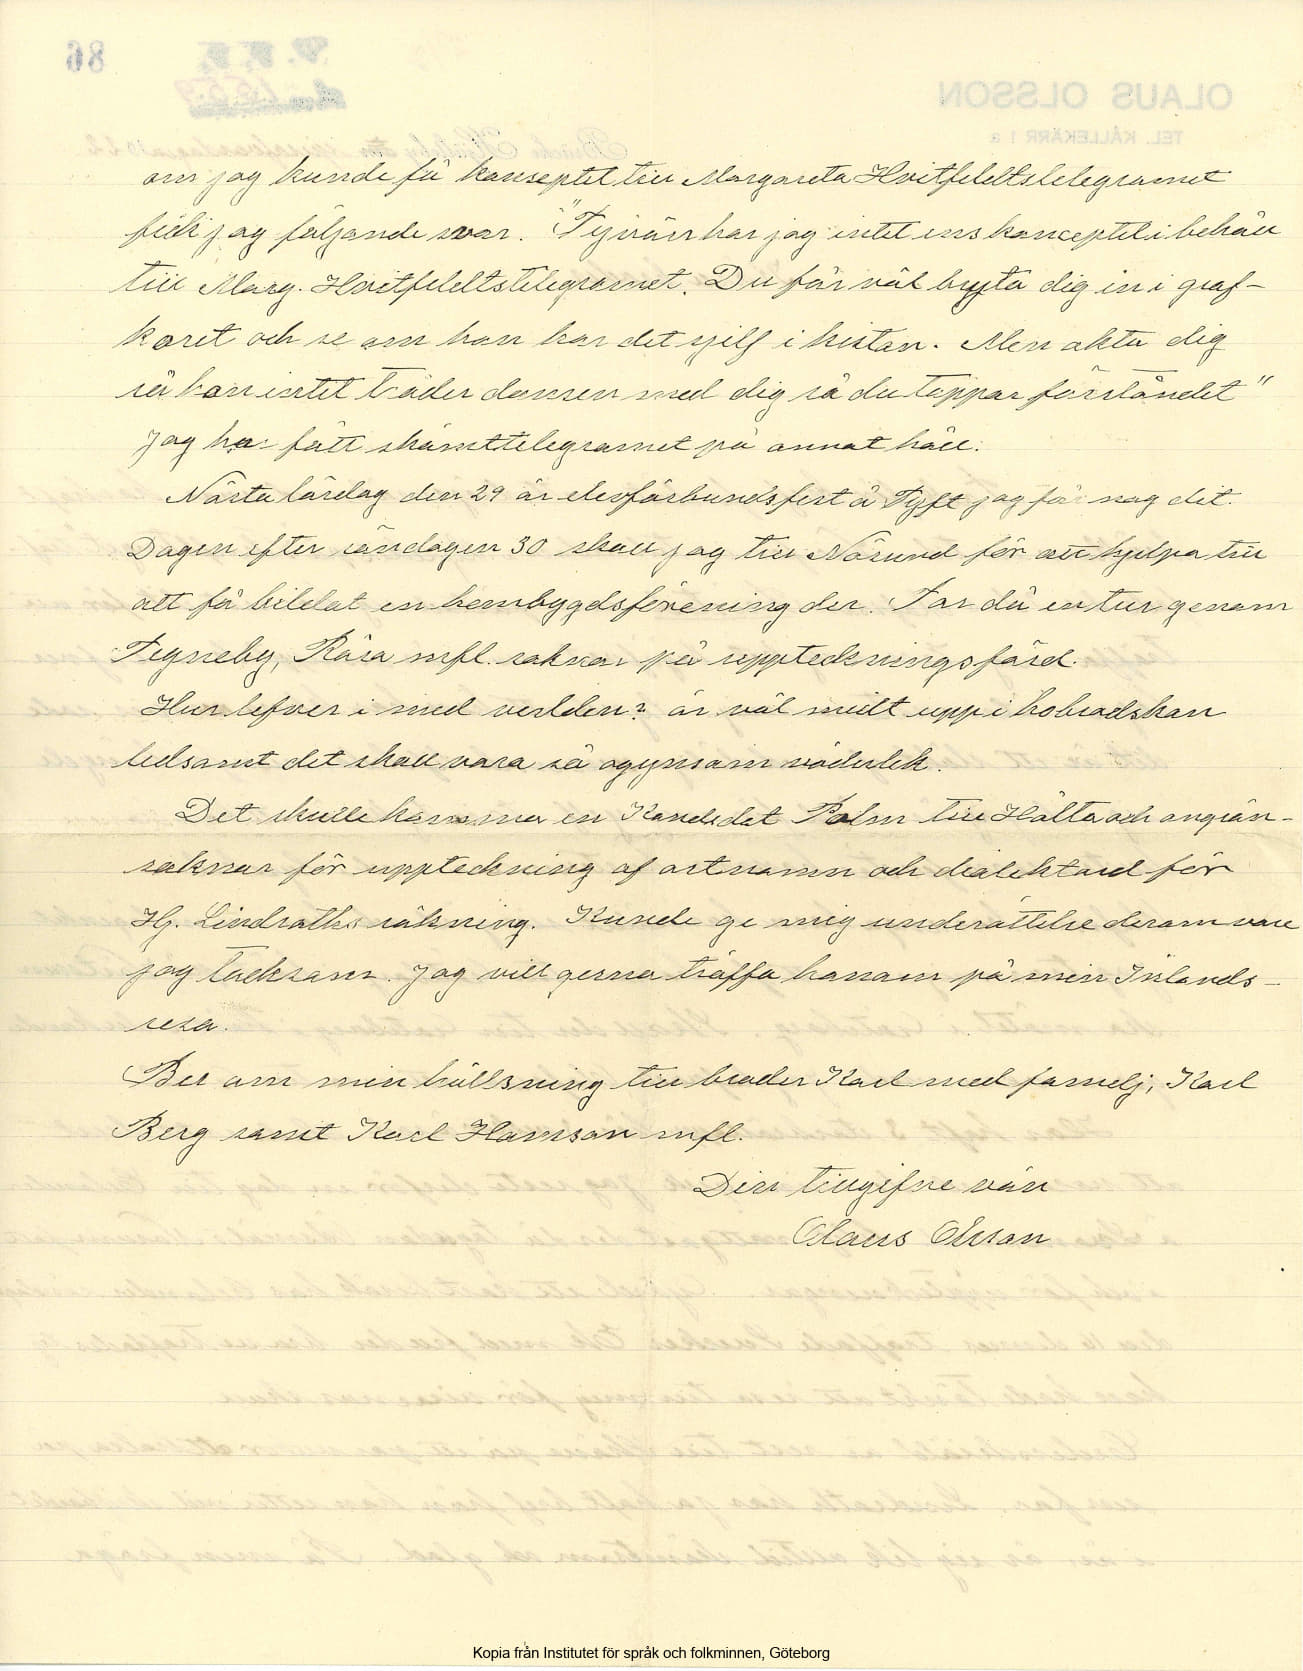 om jag kunde få konseptet till Margareta Hvitfeldtstelegramet
fick jag följande svar. "Tyvärr har jag intet ens konceptet i behåll
till Marg. Hvitfeldtstelegramet. Du får väl bryta dig in i graf-
koret och se om hon har det sjelf i kistan. Men akta dig
så hon intet träder dansen med dig så du tappar förståndet"
Jag har fått skämttelegramet på annat håll.
Nästa lördag den 29 är elevförbundsfest å Tyft jag får nog dit.
Dagen efter söndagen 30 skall jag till Näsund för att hjelpa till
att få bildat en hembygdsförening der. Tar då en tur genom
Tegneby, Röra mfl. soknar på uppteckningsfärd.
Hur lefver i med verlden? är väl midt upp i höbradskan
ledsamt det skall vara så ogynsam väderlek.
Det skulle komma en Kandidat Palm till Hålta och angrän-
soknar för uppteckning af ortnamn och dialektord för
Hj. Lindroths räkning. Kunde ge mig underättelse derom vore
jag tacksam. Jag vill gerna träffa honom på min Inlands-
resa.
Ber om min hällsning till broder Karl med familj, Karl
Berg samt Karl Hansson mfl.
Din tillgifne vän
Olaus Olsson
Kopia från Institutet för språk och folkminnen, Göteborg